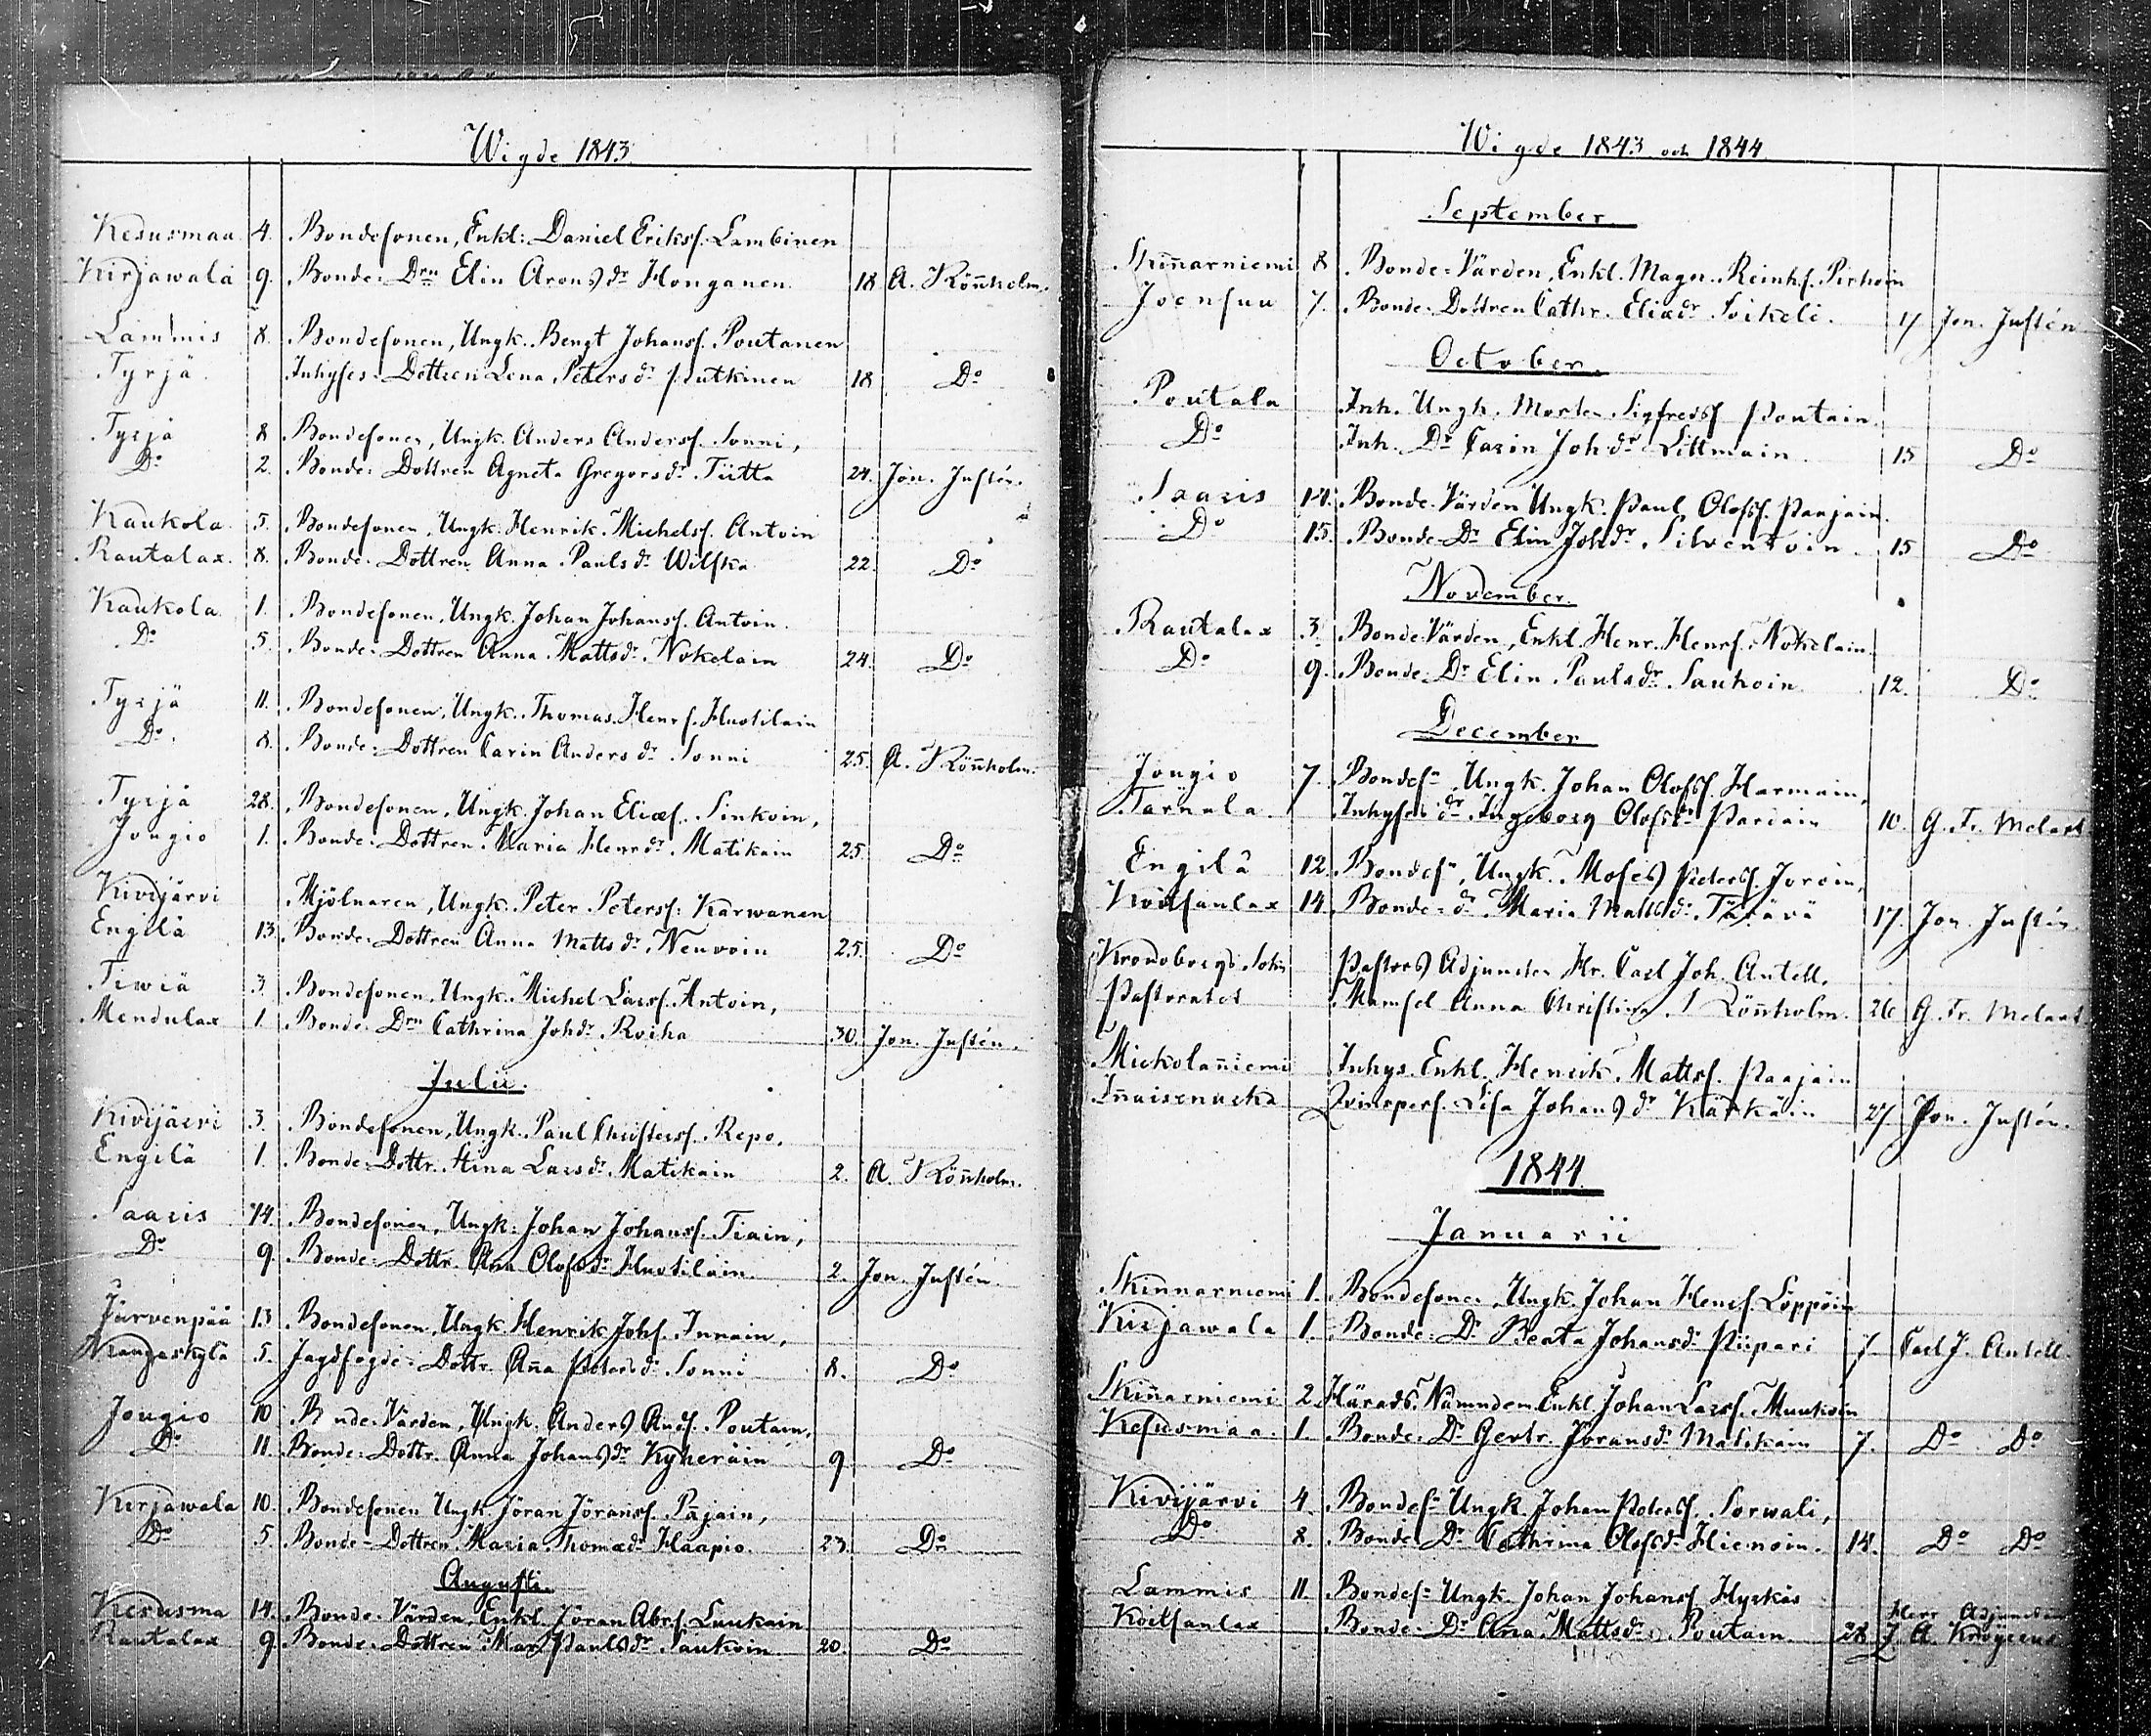 Wigde 1843.
Kesusmaa 4. Bondesonen, Enkl: Daniel Eriksf. Lambinen
Kirjawala 9. Bonde-Drn Elin Arons dr Honganen 18 A. Rönnholm.
Lammis 8. Bondesonen, Ungk. Bengt Johansf. Poutanen
Tyrjä Inhyses-Dottren Lena Peters dr Putkinen 18 Do
Tyrjä 8 Bondesonen, Ungk. Anders Andersf. Sonni,
Do 2. Bonde-Dottren Agneta Gregors dr Tiitta 24. Jon. Justén.
Kaukola 5. Bondesonen, Ungk. Henrik Michelsf. Antoin
Rautalax. 8. Bonde-Dottren Anna Pauls dr Wilska 22. Do
Kaukola 1. Bondesonen, Ungk. Johan Johansf. Antoin.
Do 5. Bonde-Dottren Anna Matts dr Nokelain 24. Do
Tyrjä 11. Bondesonen, Ungk. Thomas Henrf. Huotilain
Do. 8. Bonde-Dottren Carin Anders dr Sonni 25. A. Rönnholm.
Tyrjä 28. Bondesonen, Ungk. Johan Eliæf. Sinkoin,
Jougio 1. Bonde-Dottren Maria Henr dr Matikain 25. Do
Kivijärvi Mjölnaren, Ungk. Peter Petersf. Karwanen
Engilä 13. Bonde-Dottren Anna Matts dr Neuvoin 25. Do
Tiwiä 3. Bondesonen, Ungk. Michel Larsf. Antoin,
Mendulax 1. Bonde-Drn Cathrina Joh dr Roiha 30. Jon. Justén.
Julii.
Kivijärvi 3. Bondesonen, Ungk. Paul Christersf. Repo,
Engilä 1. Bonde-Dottr. Stina Lars dr Matikain 2. A. Rönnholm.
Saaris 14. Bondesonen, Ungk. Johan Johansf. Tiain,
Do 9. Bonde-Dottr. Ana Olofs dr Huotilain 2. Jon. Justén.
Järvenpää 13. Bondesonen, Ungk. Henrik Johf. Innain,
Mangaskylä 5. Jagdfogde-Dottr. Aña Peters dr Sonni 8. Do
Jougio 10 Bonde-Värden, Ungk. Anders Andf. Poutain,
Do 11. Bonde-Dottr. Anna Johans dr Kyheräin 9 Do
Kirjawala 10. Bondesonen Ungk. Jöran Jöransf. Päjain,
Do 5. Bonde-Dottren Maria Thomæ dr Haapio. 23. Do
Augusti.
Kesusma 14. Bonde-Värden, Enkl. Jöran Abrf. Luukain
Rautalax 9. Bonde-Dottren Mar. Pauls dr Saukoin 20. Do
Wigde 1843 och 1844
September
Skiñarniemi 8 Bonde-Värden, Enkl. Magn. Reinhf. Pirhoin
Joensuu 7. Bonde-Dottren Cathr. Eliæ dr Soikeli. 17 Jon. Justén
October.
Poutala Inh. Ungk. Morten Sigfredsf Poutain.
Do Inh. Dr Carin Joh dr Littmain. 15 Do
Saaris 14. Bonde-Värden Ungk. Paul Olofsf. Paajain.
Do 15. Bonde-Dr Elin Joh dr Silventoin. 15 Do
November.
Rautalax 3. Bonde-Värden, Enkl. Henr. Henrf. Nokelain.
Do 9. Bonde-Dr Elin Pauls dr Saukoin 12. Do
December
Jougio 7. Bondesn Ungk. Johan Olofsf. Harmain,
Tarnala. Inhyses dr Ingeborg Olofs dr Pariain 10. G. Fr. Melart
Engilä 12. Bondesn Ungk. Moses Petersf. Joroin,
Koitsanlax 14. Bonde-dr Maria Matts dr Tärävä 17. Jon. Justén.
Kronoborgs Sokn Pastors Adjuncten Hr. Carl Joh. Antell.
Pastoratet Mamsel Anna Christina Rönnholm. 26 G. Fr. Melart
Mickolañiemi Inhys. Enkl. Henrik Mattsf. Paajain
Iñaisenacka Qvinspers. Lisa Johans dr Kärkäin 27. Jon. Justén.
1844
Januarii
Skinnarniemi 1. Bondesonen, Ungk. Johan Henrf. Loppöin
Kirjawala 1. Bonde-Dr Beata Johans dr Piipari 7. Carl J. Antell.
Skiñarniemi 2 Härads Nämndem. Enkl. Johan Larsf. Muukoin
Kesusmaa. 1. Bonde-Dr Gertr. Jörans dr Matikain 7. Do Do
Kivijärvi 4. Bondesn Ungk. Johan Petersf. Sorwali,
Do 8. Bonde Dr Cathrina Olofs dr Hienoin. 14. Do Do
Lammis 11. Bondesn Ungk. Johan Johansf Hyrkäs
Koitsanlax Bonde-Dr Ana Matts dr Poutain. 28 Herr Adjuncten